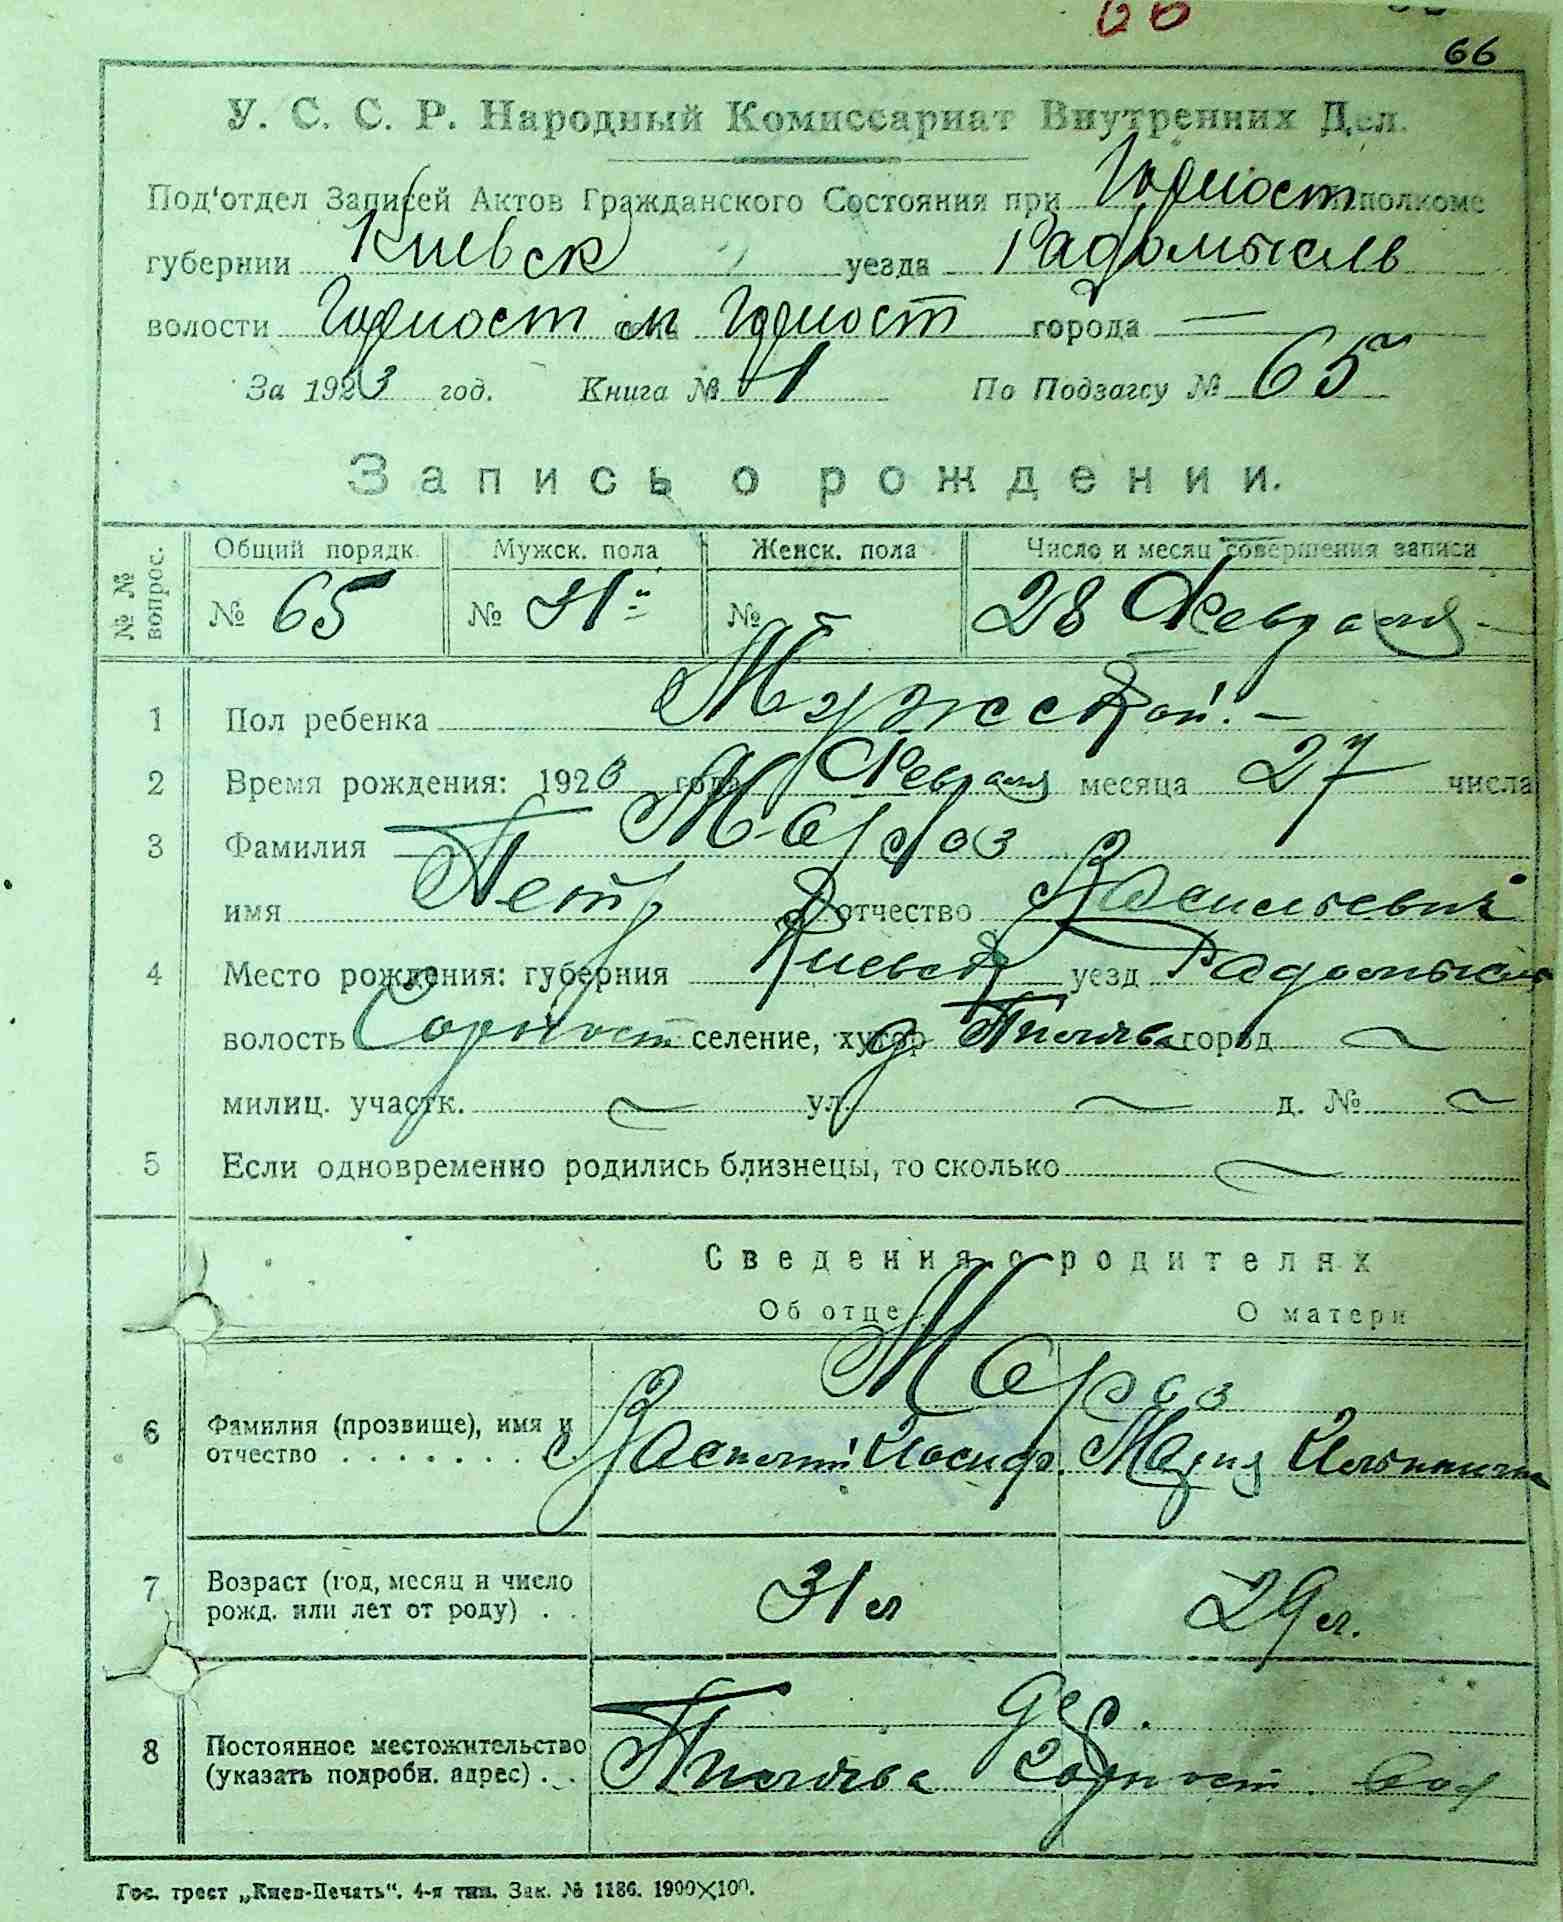 66
66
У. С. С. Р. Народный Комиссариат Внутренних Дел.
Под'отдел Записей Актов Гражданского Состояния при Горност исполкоме
губернии Киевск уезда Радомысль
волости Горност м Горност города —
За 1923 год. Книга № 1 По Подзагсу № 65
Запись о рождении.
№ № вопрос. Общий порядк. Мужск. пола Женск. пола Число и месяц совершения записи
№ 65 № 31 № 28 Февраля
1 Пол ребенка Мужской. —
2 Время рождения: 1923 года Февраля месяца 27 числа
3 Фамилия Мороз
имя Петр отчество Васильевич
4 Место рождения: губерния Киевск уезд Радомысль
волость Горност селение, хутор д город ~
милиц. участк. ~ ул. ~ д. № ~
5 Если одновременно родились близнецы, то сколько ~
Сведения о родителях
Об отце О матери
Мороз
6 Фамилия (прозвище), имя и
отчество . . . . . . . Василий Иосиф. Мария
7 Возраст (год, месяц и число
рожд. или лет от роду) . . 31 л 29 л.
дер.
8 Постоянное местожительство
(указать подробн. адрес) . . Горност. вол
Гос. трест „Киев-Печать". 4-я тип. Зак. № 1186. 1900×100.